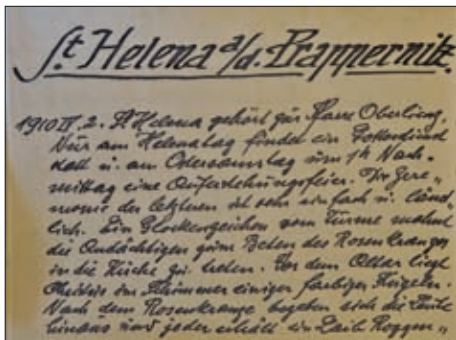 St. Helena a/d. Prappernitz.
1910 II, 2. St. Helena gehört zur Pfarre Oberlienz.
Nur am Helenatag findet ein Gottesdienst
statt u. am Ostersamstag um 1h Nach-
mittag eine Auferstehungsfeier. Die Zere„
monie der letzteren ist sehr einfach u. länd„
lich. Ein Glockenzeichen vom Turme mahnt
die Andächtigen zum Beten des Rosenkranzes
in die Kirche zu treten. Vor dem Altar liegt
Christus im Schimmer einiger farbiger Kugeln.
Nach dem Rosenkranze begeben sich die Leute
hinaus und jeder erhält ein Laib Roggen„